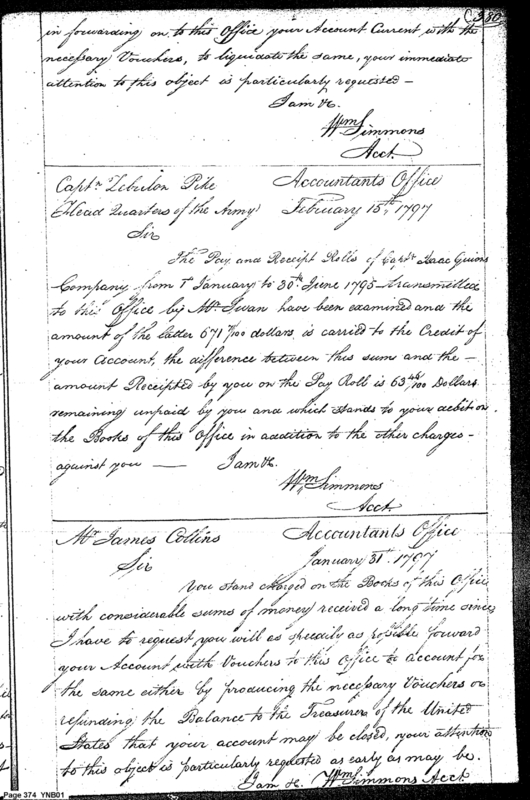 380
in forwarding on to this Office your Account Current with the
necessary Vouchers, to liquidate the same, your immediate
attention to this object is particularly requested —
I am &c.
Wm Simmons
Acct.
Captn Zebulon Pike
Accountants Office
Head Quarters of the Army
February 15th, 1797
Sir
The Pay and Receipt Rolls of Capt Isaac Guions
Company from 1t January to 30th June 1795 transmitted
to this Office by Mr. Swan have been examined and the
amount of the latter 671 /100 dollars, is carried to the Credit of
your Account, the difference between this sum and the —
amount Receipted by you on the Pay Roll is 63 /100 Dollars
remaining unpaid by you and which stands to your debit on
the Books of this Office in addition to the other charges —
against you — I am &c.
Wm Simmons
Acct.
Mr James Collins
Accountants Office
Sir
January 31st. 1797
You stand charged on the Books of this Office
with considerable sums of money received a long time since
I have to request you will as speedily as possible forward
your Account with Vouchers to this Office to account for
the same either by producing the necessary Vouchers or
refunding the Balance to the Treasurer of the United
States that your account may be closed, your attention
to this object is particularly requested as early as may be.
I am &c. Wm Simmons Acct.
Page 374 YNB01